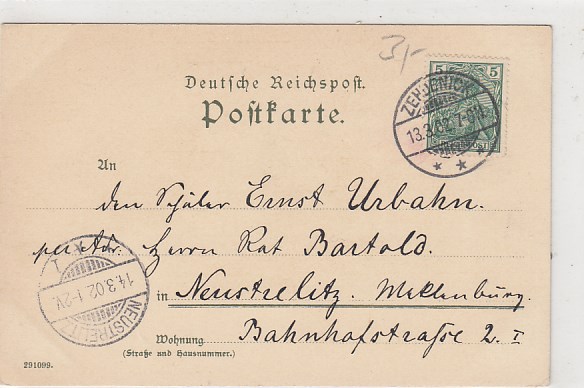 3,-
5 5
ZEHDENICK
13.3.02. 7-8N.
Deutsche Reichspost.
Postkarte.
An
den Schüler Ernst Urbahn.
per Adr: Herrn Rat Bartold.
NEUSTRELITZ
14.3.02. 1-2V.
in Neustrelitz. Meklenburg.
Bahnhofstrasse 2. I
Wohnung
(Straße und Hausnummer.)
291099.